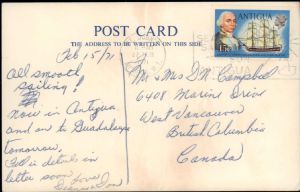 POST CARD
THE ADDRESS TO BE WRITTEN ON THIS SIDE
ANTIGUA
15c
Feb 15/71
All smooth
sailing!
Now in Antigua
and on to Guadaloupe
tomorrow.
Will in details in
letter soon Love
Mr & Mrs D.M. Campbell
6408 Marine Drive
West Vancouver
British Columbia
Canada